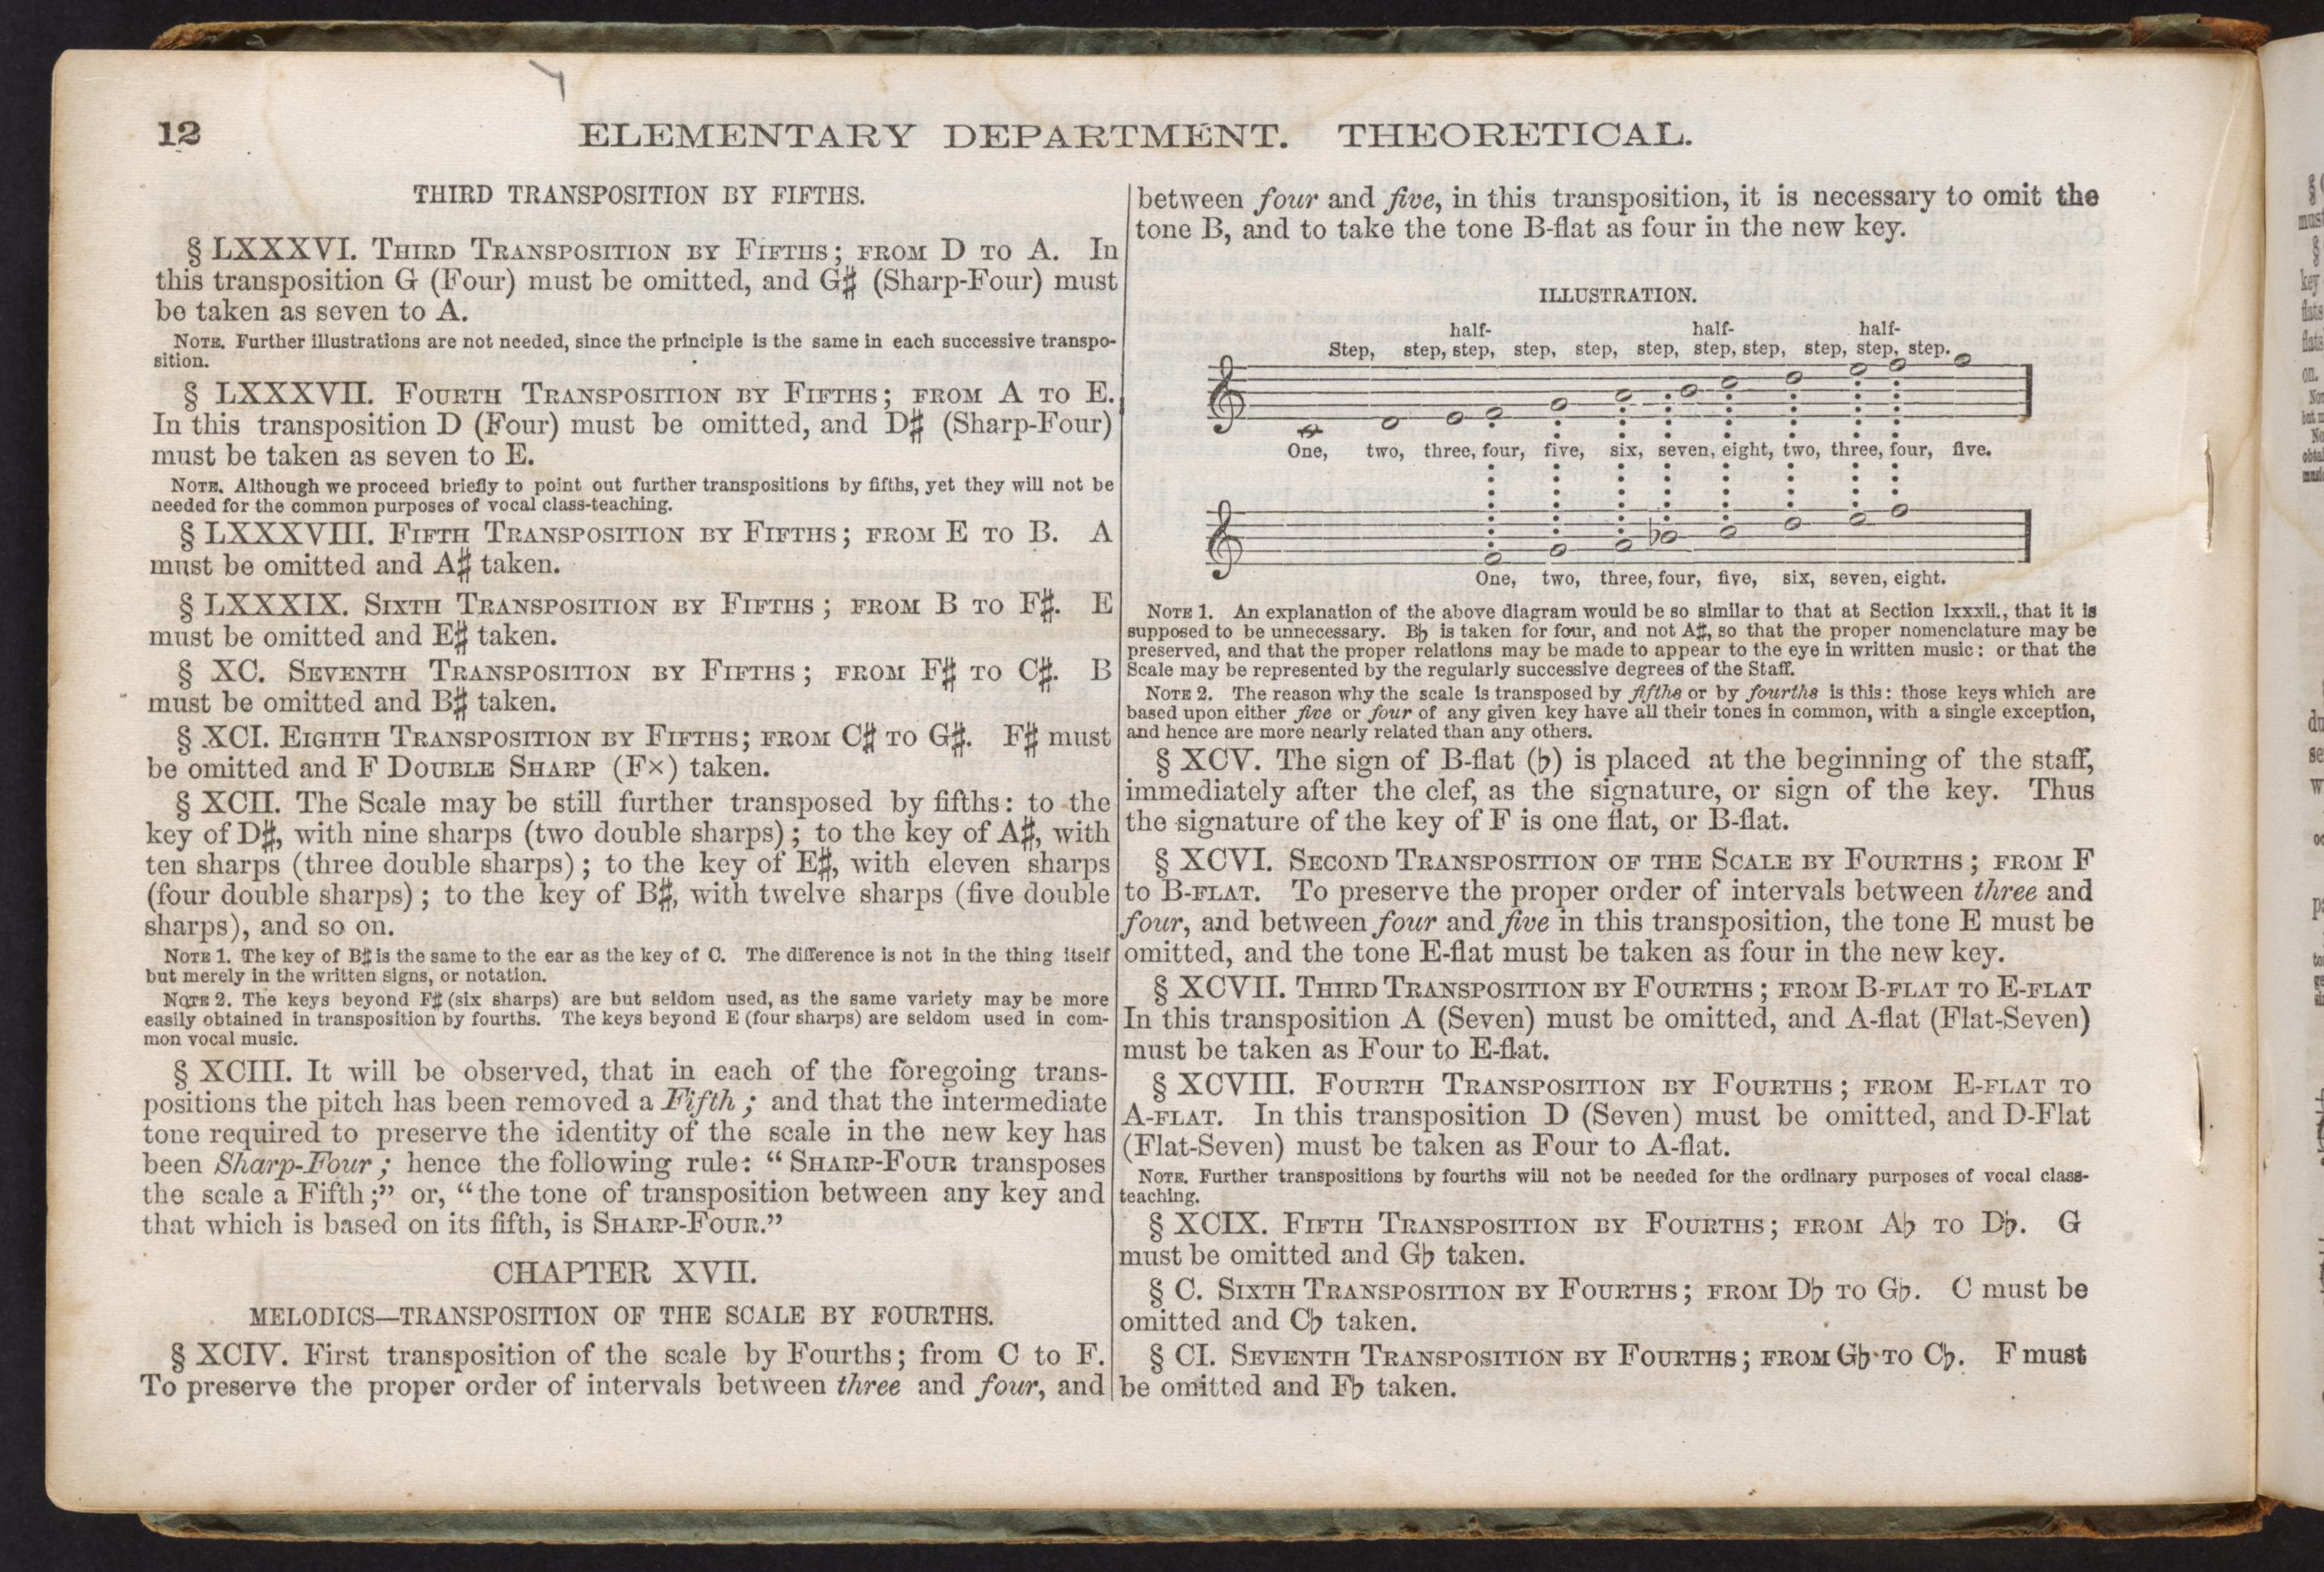 12
ELEMENTARY DEPARTMENT. THEORETICAL.
THIRD TRANSPOSITION BY FIFTHS.
§ LXXXVI. THIRD TRANSPOSITION BY FIFTHS; FROM D TO A. In
this transposition G (Four) must be omitted, and G♯ (Sharp-Four) must
be taken as seven to A.
NOTE. Further illustrations are not needed, since the principle is the same in each successive transpo-
sition.
§ LXXXVII. FOURTH TRANSPOSITION BY FIFTHS; FROM A TO E.
In this transposition D (Four) must be omitted, and D♯ (Sharp-Four)
must be taken as seven to E.
NOTE. Although we proceed briefly to point out further transpositions by fifths, yet they will not be
needed for the common purposes of vocal class-teaching.
§ LXXXVIII. FIFTH TRANSPOSITION BY FIFTHS; FROM E TO B. A
must be omitted and A♯ taken.
§ LXXXIX. SIXTH TRANSPOSITION BY FIFTHS; FROM B TO F♯. E
must be omitted and E♯ taken.
§ XC. SEVENTH TRANSPOSITION BY FIFTHS; FROM F♯ TO C♯. B
must be omitted and B♯ taken.
§ XCI. EIGHTH TRANSPOSITION BY FIFTHS; FROM C♯ TO G♯. F♯ must
be omitted and F DOUBLE SHARP (F×) taken.
§ XCII. The Scale may be still further transposed by fifths: to the
key of D♯, with nine sharps (two double sharps); to the key of A♯, with
ten sharps (three double sharps); to the key of E♯, with eleven sharps
(four double sharps); to the key of B♯, with twelve sharps (five double
sharps), and so on.
NOTE 1. The key of B♯ is the same to the ear as the key of C. The difference is not in the thing itself
but merely in the written signs, or notation.
NOTE 2. The keys beyond F♯ (six sharps) are but seldom used, as the same variety may be more
easily obtained in transposition by fourths. The keys beyond E (four sharps) are seldom used in com-
mon vocal music.
§ XCIII. It will be observed, that in each of the foregoing trans-
positions the pitch has been removed a Fifth; and that the intermediate
tone required to preserve the identity of the scale in the new key has
been Sharp-Four; hence the following rule: “SHARP-FOUR transposes
the scale a Fifth;” or, “the tone of transposition between any key and
that which is based on its fifth, is SHARP-FOUR.”
CHAPTER XVII.
MELODICS—TRANSPOSITION OF THE SCALE BY FOURTHS.
§ XCIV. First transposition of the scale by Fourths; from C to F.
To preserve the proper order of intervals between three and four, and
between four and five, in this transposition, it is necessary to omit the
tone B, and to take the tone B-flat as four in the new key.
ILLUSTRATION.
half- half- half-
Step, step, step, step, step, step, step, step, step, step, step.
One, two, three, four, five, six, seven, eight, two, three, four, five.
One, two, three, four, five, six, seven, eight.
NOTE 1. An explanation of the above diagram would be so similar to that at Section lxxxii., that it is
supposed to be unnecessary. B♭ is taken for four, and not A♯, so that the proper nomenclature may be
preserved, and that the proper relations may be made to appear to the eye in written music: or that the
Scale may be represented by the regularly successive degrees of the Staff.
NOTE 2. The reason why the scale is transposed by fifths or by fourths is this: those keys which are
based upon either five or four of any given key have all their tones in common, with a single exception,
and hence are more nearly related than any others.
§ XCV. The sign of B-flat (♭) is placed at the beginning of the staff,
immediately after the clef, as the signature, or sign of the key. Thus
the signature of the key of F is one flat, or B-flat.
§ XCVI. SECOND TRANSPOSITION OF THE SCALE BY FOURTHS; FROM F
to B-FLAT. To preserve the proper order of intervals between three and
four, and between four and five in this transposition, the tone E must be
omitted, and the tone E-flat must be taken as four in the new key.
§ XCVII. THIRD TRANSPOSITION BY FOURTHS; FROM B-FLAT TO E-FLAT
In this transposition A (Seven) must be omitted, and A-flat (Flat-Seven)
must be taken as Four to E-flat.
§ XCVIII. FOURTH TRANSPOSITION BY FOURTHS; FROM E-FLAT TO
A-FLAT. In this transposition D (Seven) must be omitted, and D-Flat
(Flat-Seven) must be taken as Four to A-flat.
NOTE. Further transpositions by fourths will not be needed for the ordinary purposes of vocal class-
teaching.
§ XCIX. FIFTH TRANSPOSITION BY FOURTHS; FROM A♭ TO D♭. G
must be omitted and G♭ taken.
§ C. SIXTH TRANSPOSITION BY FOURTHS; FROM D♭ TO G♭. C must be
omitted and C♭ taken.
§ CI. SEVENTH TRANSPOSITION BY FOURTHS; FROM G♭ TO C♭. F must
be omitted and F♭ taken.